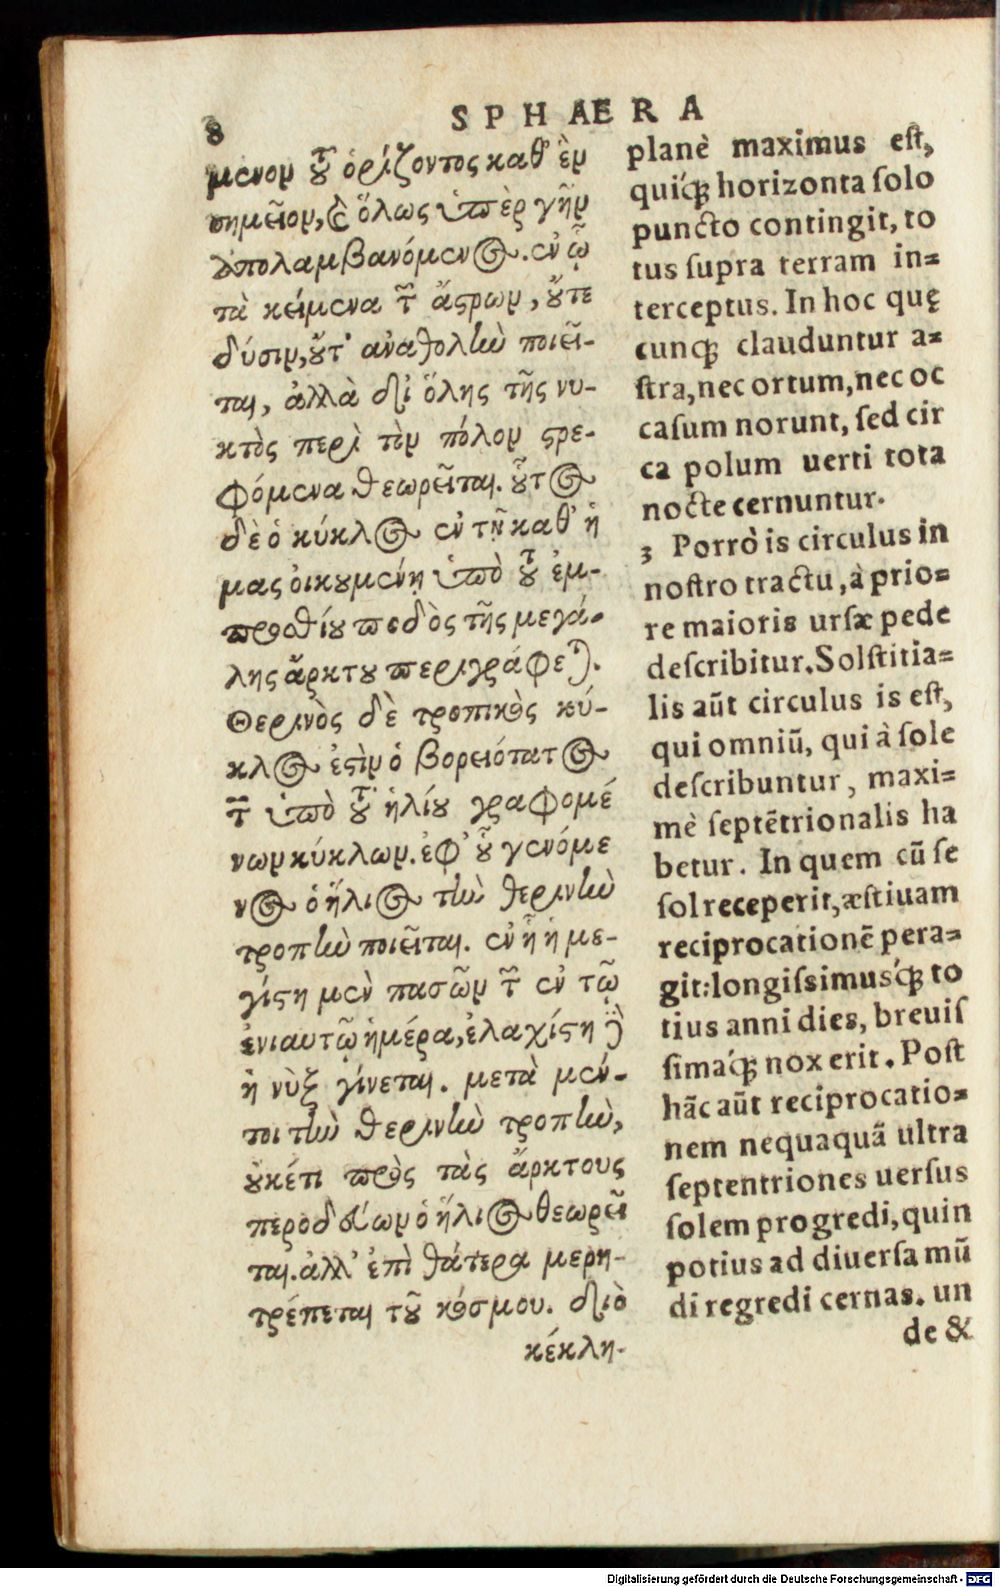 8
SPHAERA
μενον τοῦ ὁρίζοντος καθ' ἓν
σημεῖον, καὶ ὅλως ὑπὲρ γῆν
ἀπολαμβανόμενος. ἐν ᾧ
τὰ κείμενα τῶν ἄστρων, οὔτε
δύσιν, οὔτ' ἀνατολὴν ποιεῖ-
ται, ἀλλὰ δι' ὅλης τῆς νυ-
κτὸς περὶ τὸν πόλον στρε-
φόμενα θεωρεῖται. οὗτος
δὲ ὁ κύκλος ἐν τῇ καθ' ἡ
μας οἰκουμένῃ ὑπὸ τοῦ ἐμ-
προσθίου ποδὸς τῆς μεγά-
λης ἄρκτου περιγράφεται.
Θερινὸς δὲ τροπικὸς κύ-
κλος ἐστὶν ὁ βορειότατος
τῶν ὑπὸ τοῦ ἡλίου γραφομέ
νων κύκλων. ἐφ' οὗ γενόμε
νος ὁ ἥλιος τὴν θερινὴν
τροπὴν ποιεῖται. ἐν ᾗ ἡ με-
γίστη μὲν πασῶν τῶν ἐν τῷ
ἐνιαυτῷ ἡμέρα, ἐλαχίστη δὲ
ἡ νὺξ γίνεται. μετὰ μέν-
τοι τὴν θερινὴν τροπὴν,
οὐκέτι πρὸς τὰς ἄρκτους
παροδεύων ὁ ἥλιος θεωρεῖ
ται. ἀλλ' ἐπὶ θάτερα μερη-
τρέπεται τοῦ κόσμου. διὸ
κέκλη-
planè maximus est,
quiq́; horizonta solo
puncto contingit, to
tus supra terram in=
terceptus. In hoc quę
cunq; clauduntur a=
stra, nec ortum, nec oc
casum norunt, sed cir
ca polum uerti tota
nocte cernuntur.
3 Porrò is circulus in
nostro tractu, à prio=
re maioris ursæ pede
describitur. Solstitia=
lis aũt circulus is est,
qui omniũ, qui à sole
describuntur, maxi=
mè septẽtrionalis ha
betur. In quem cũ se
sol receperit, æstiuam
reciprocationẽ pera=
git: longissimusq́; to
tius anni dies, breuis
simaq́; nox erit. Post
hãc aũt reciprocatio=
nem nequaquã ultra
septentriones uersus
solem progredi, quin
potius ad diuersa mũ
di regredi cernas. un
de &
Digitalisierung gefördert durch die Deutsche Forschungsgemeinschaft - DFG